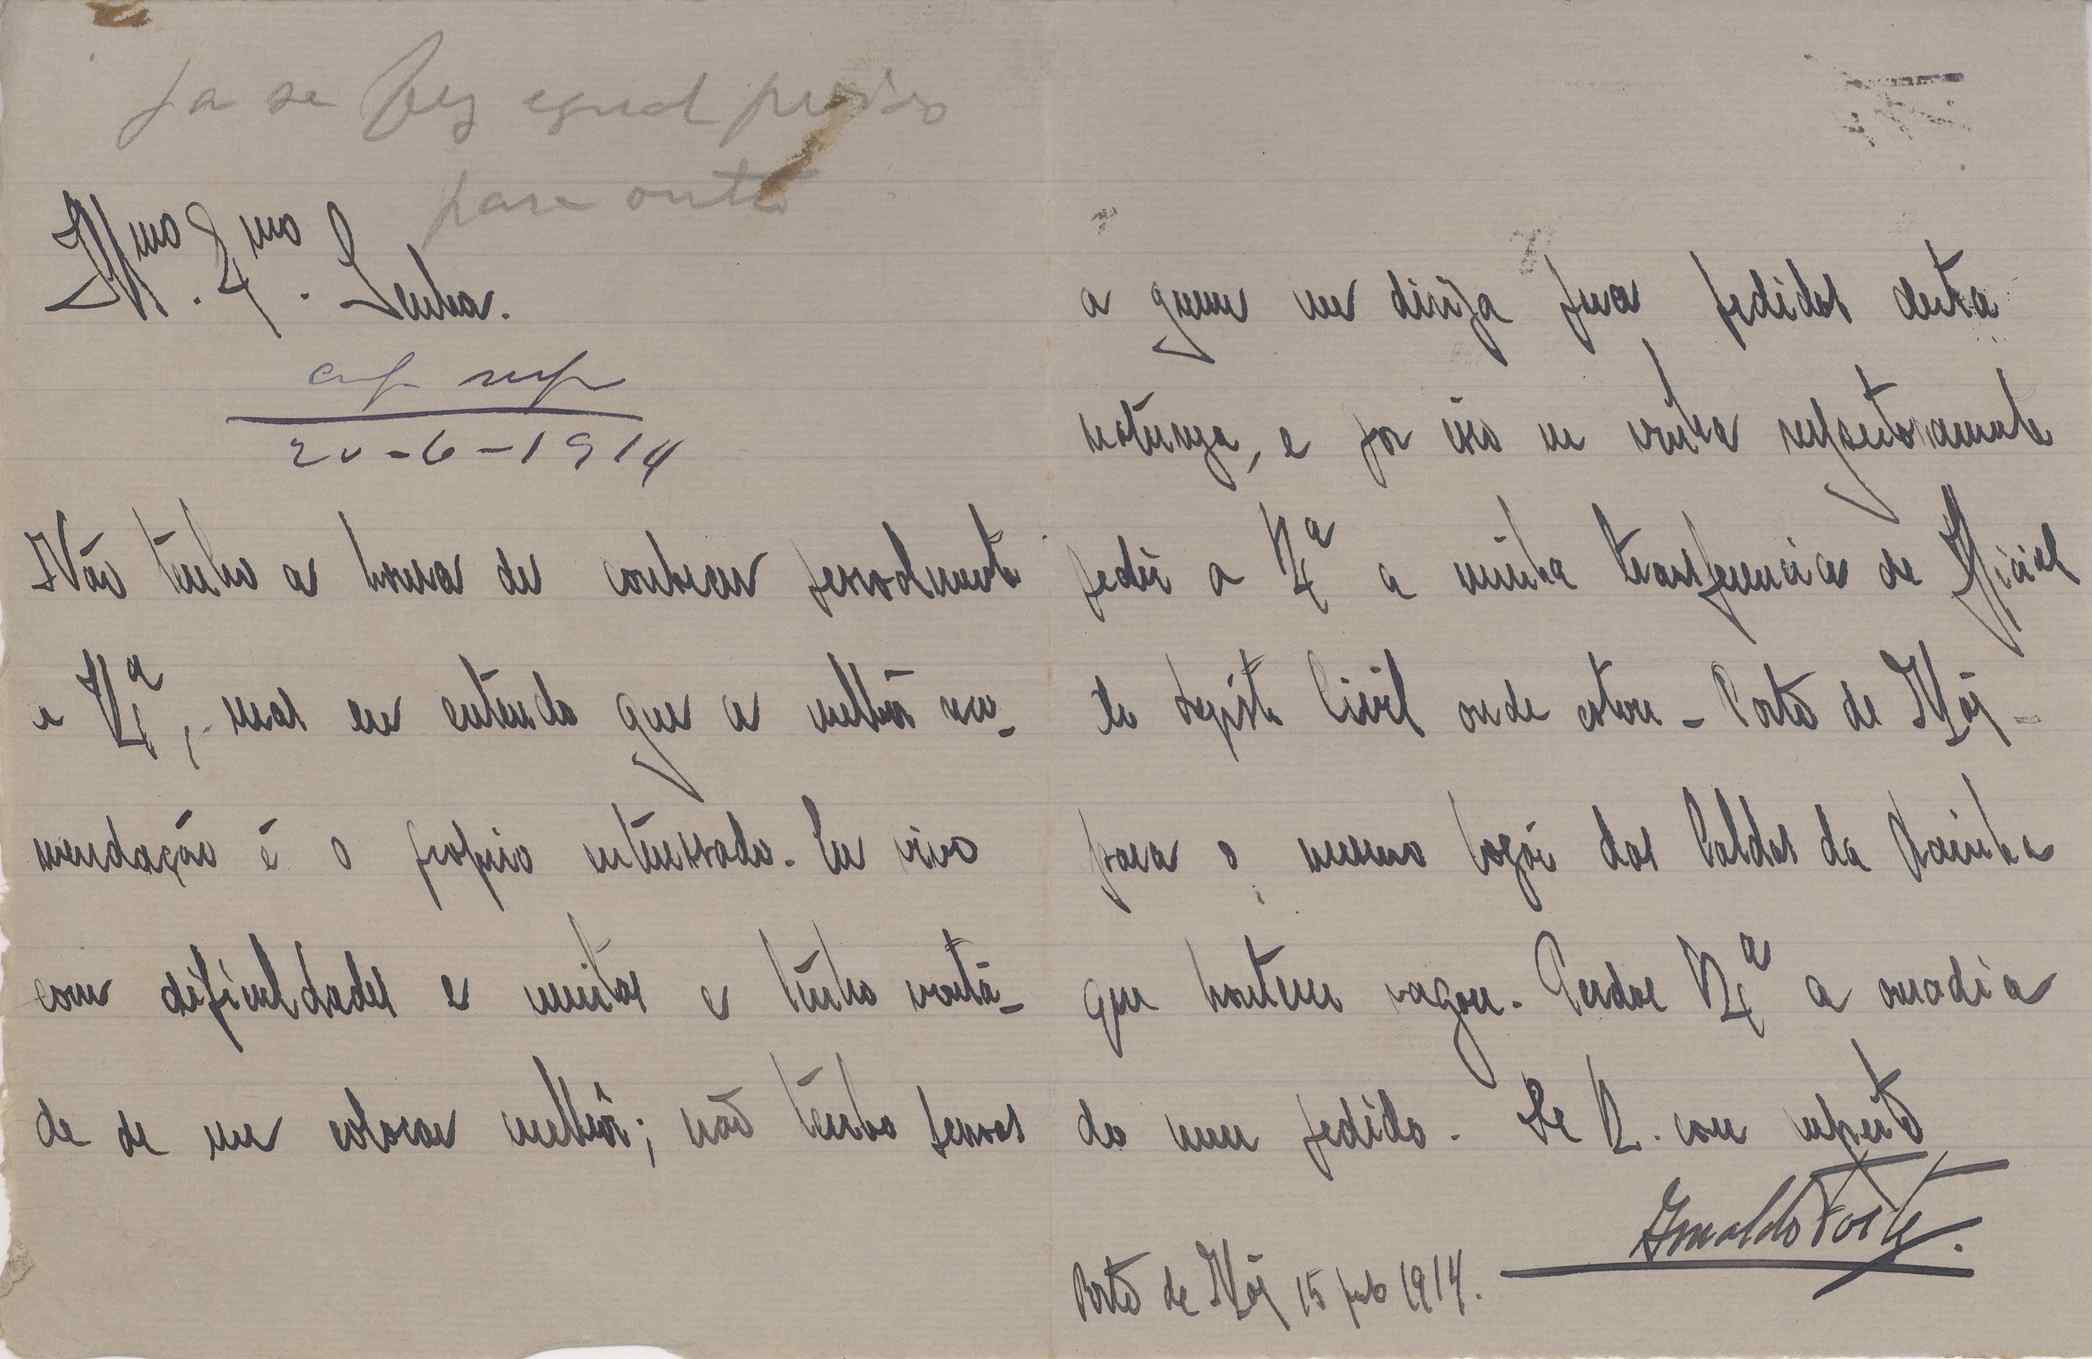 Ja se fez egual pedido
para outro
Illmo. Exmo. Senhor.
20-6-1914
Não tenho a honra de conhecer pessoalmente
a V. Exª, mas eu entendo que a melhor recom-
mendação é o proprio interessado. Eu vivo
com dificuldades e muitas e tenho vonta-
de de me colocar melhor; não tenho pessoas
a quem me dirija para pedidos desta
natureza, e por isso eu venho respeitosamente
pedir a V. Exª a minha transferencia de Oficial
do Registo Civil onde estou - Porto de Mós -
para o mesmo logar das Caldas da Rainha
que hontem vagou. Perdoe V. Exª a ousadia
do meu pedido. De V. com respeito
Arnaldo Forte.
Porto de Mós 15 1914.